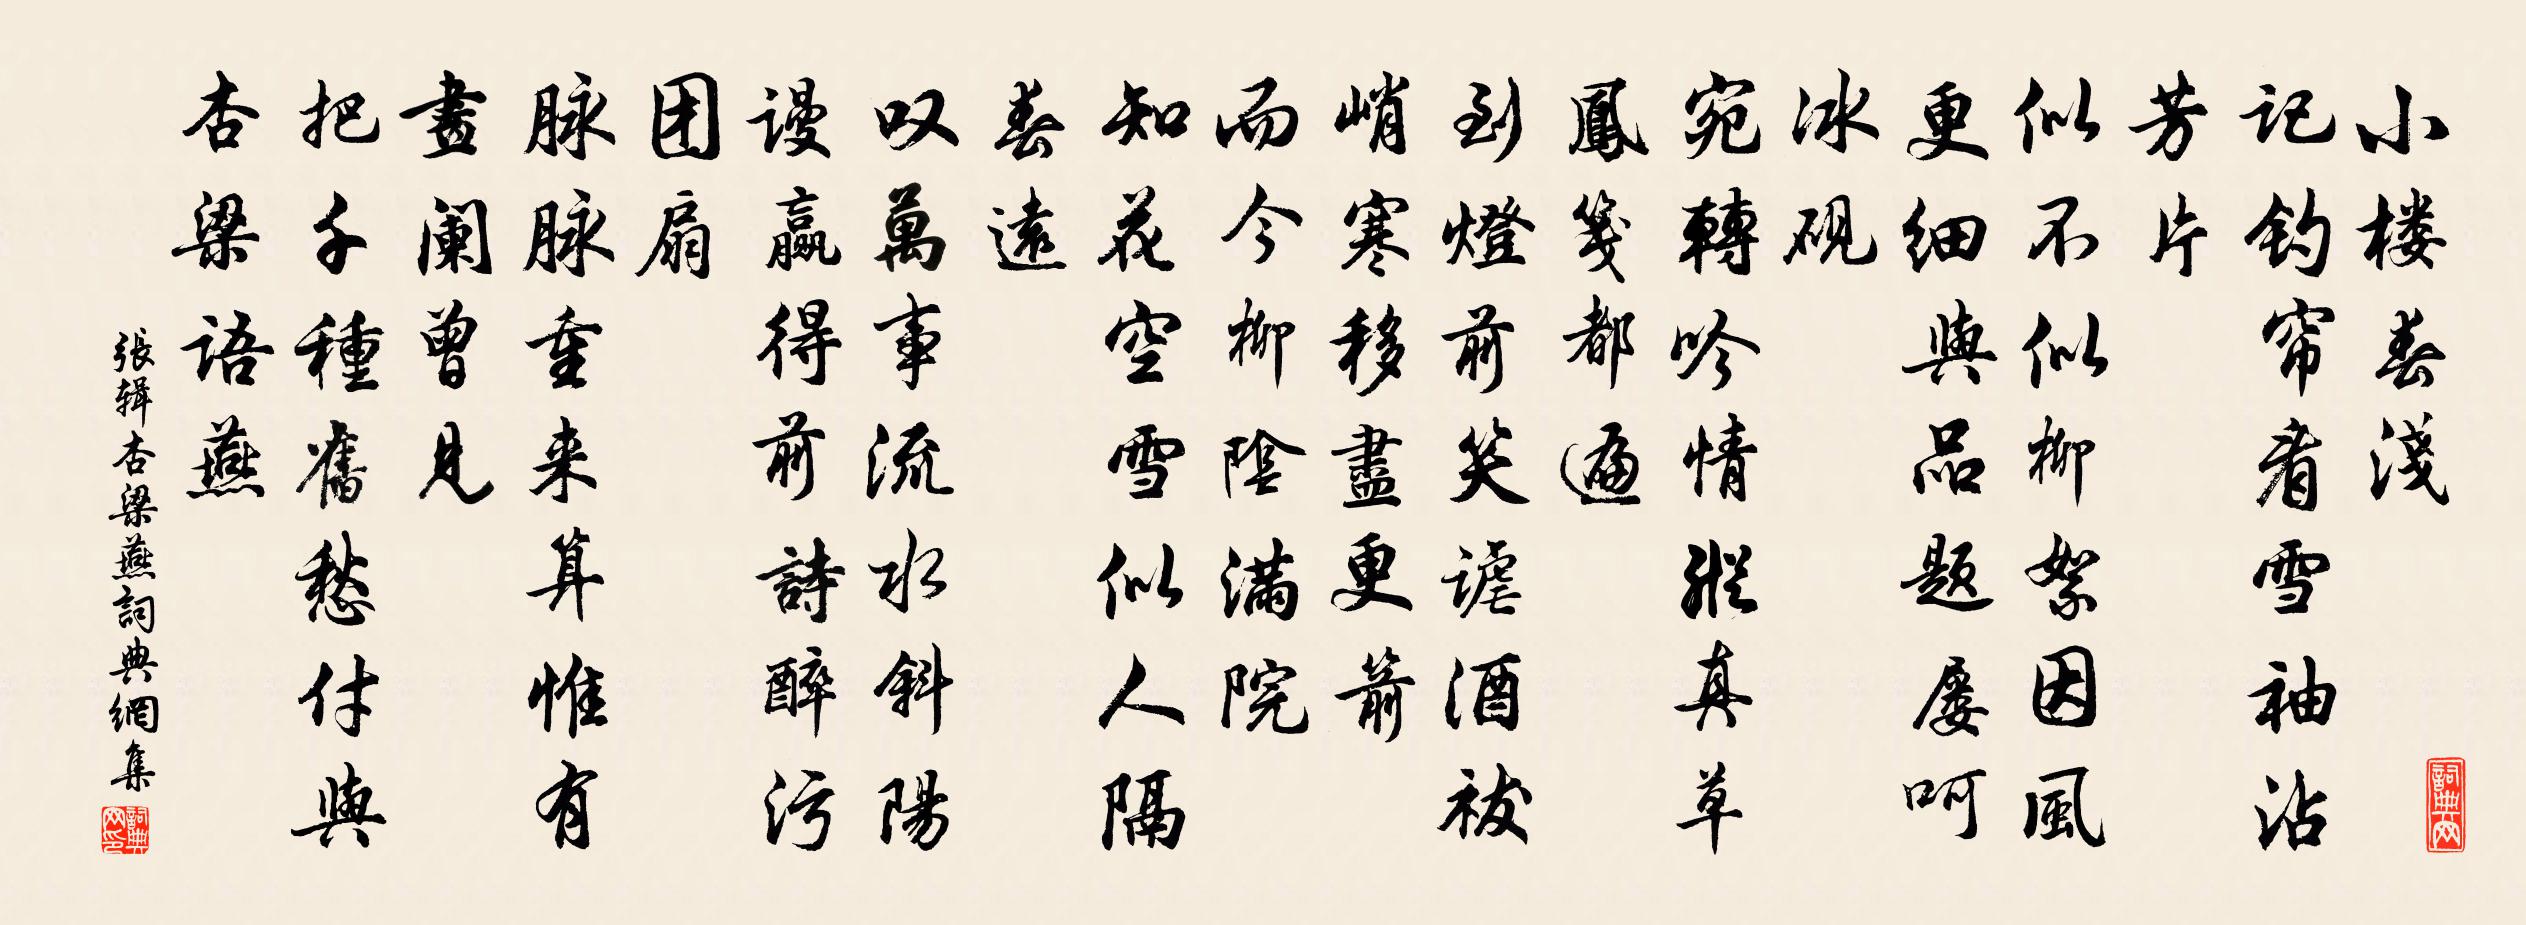 小楼春淺
記鈎帘看雪袖沾
芳片
似不似柳絮因風
更細與品题屡呵
冰硯
宛轉吟情縱真草
鳳箋都遍
到燈前笑謔酒祓
峭寒移盡更箭
而今柳陰滿院
知花空雪似人隔
春遠
叹萬事流水斜陽
谩贏得前詩醉污
团扇
脉脉重来算惟有
畫阑曾見
把千種舊愁付與
杏梁语燕
張辑杏梁燕詞典網集
詞典网
詞典网印